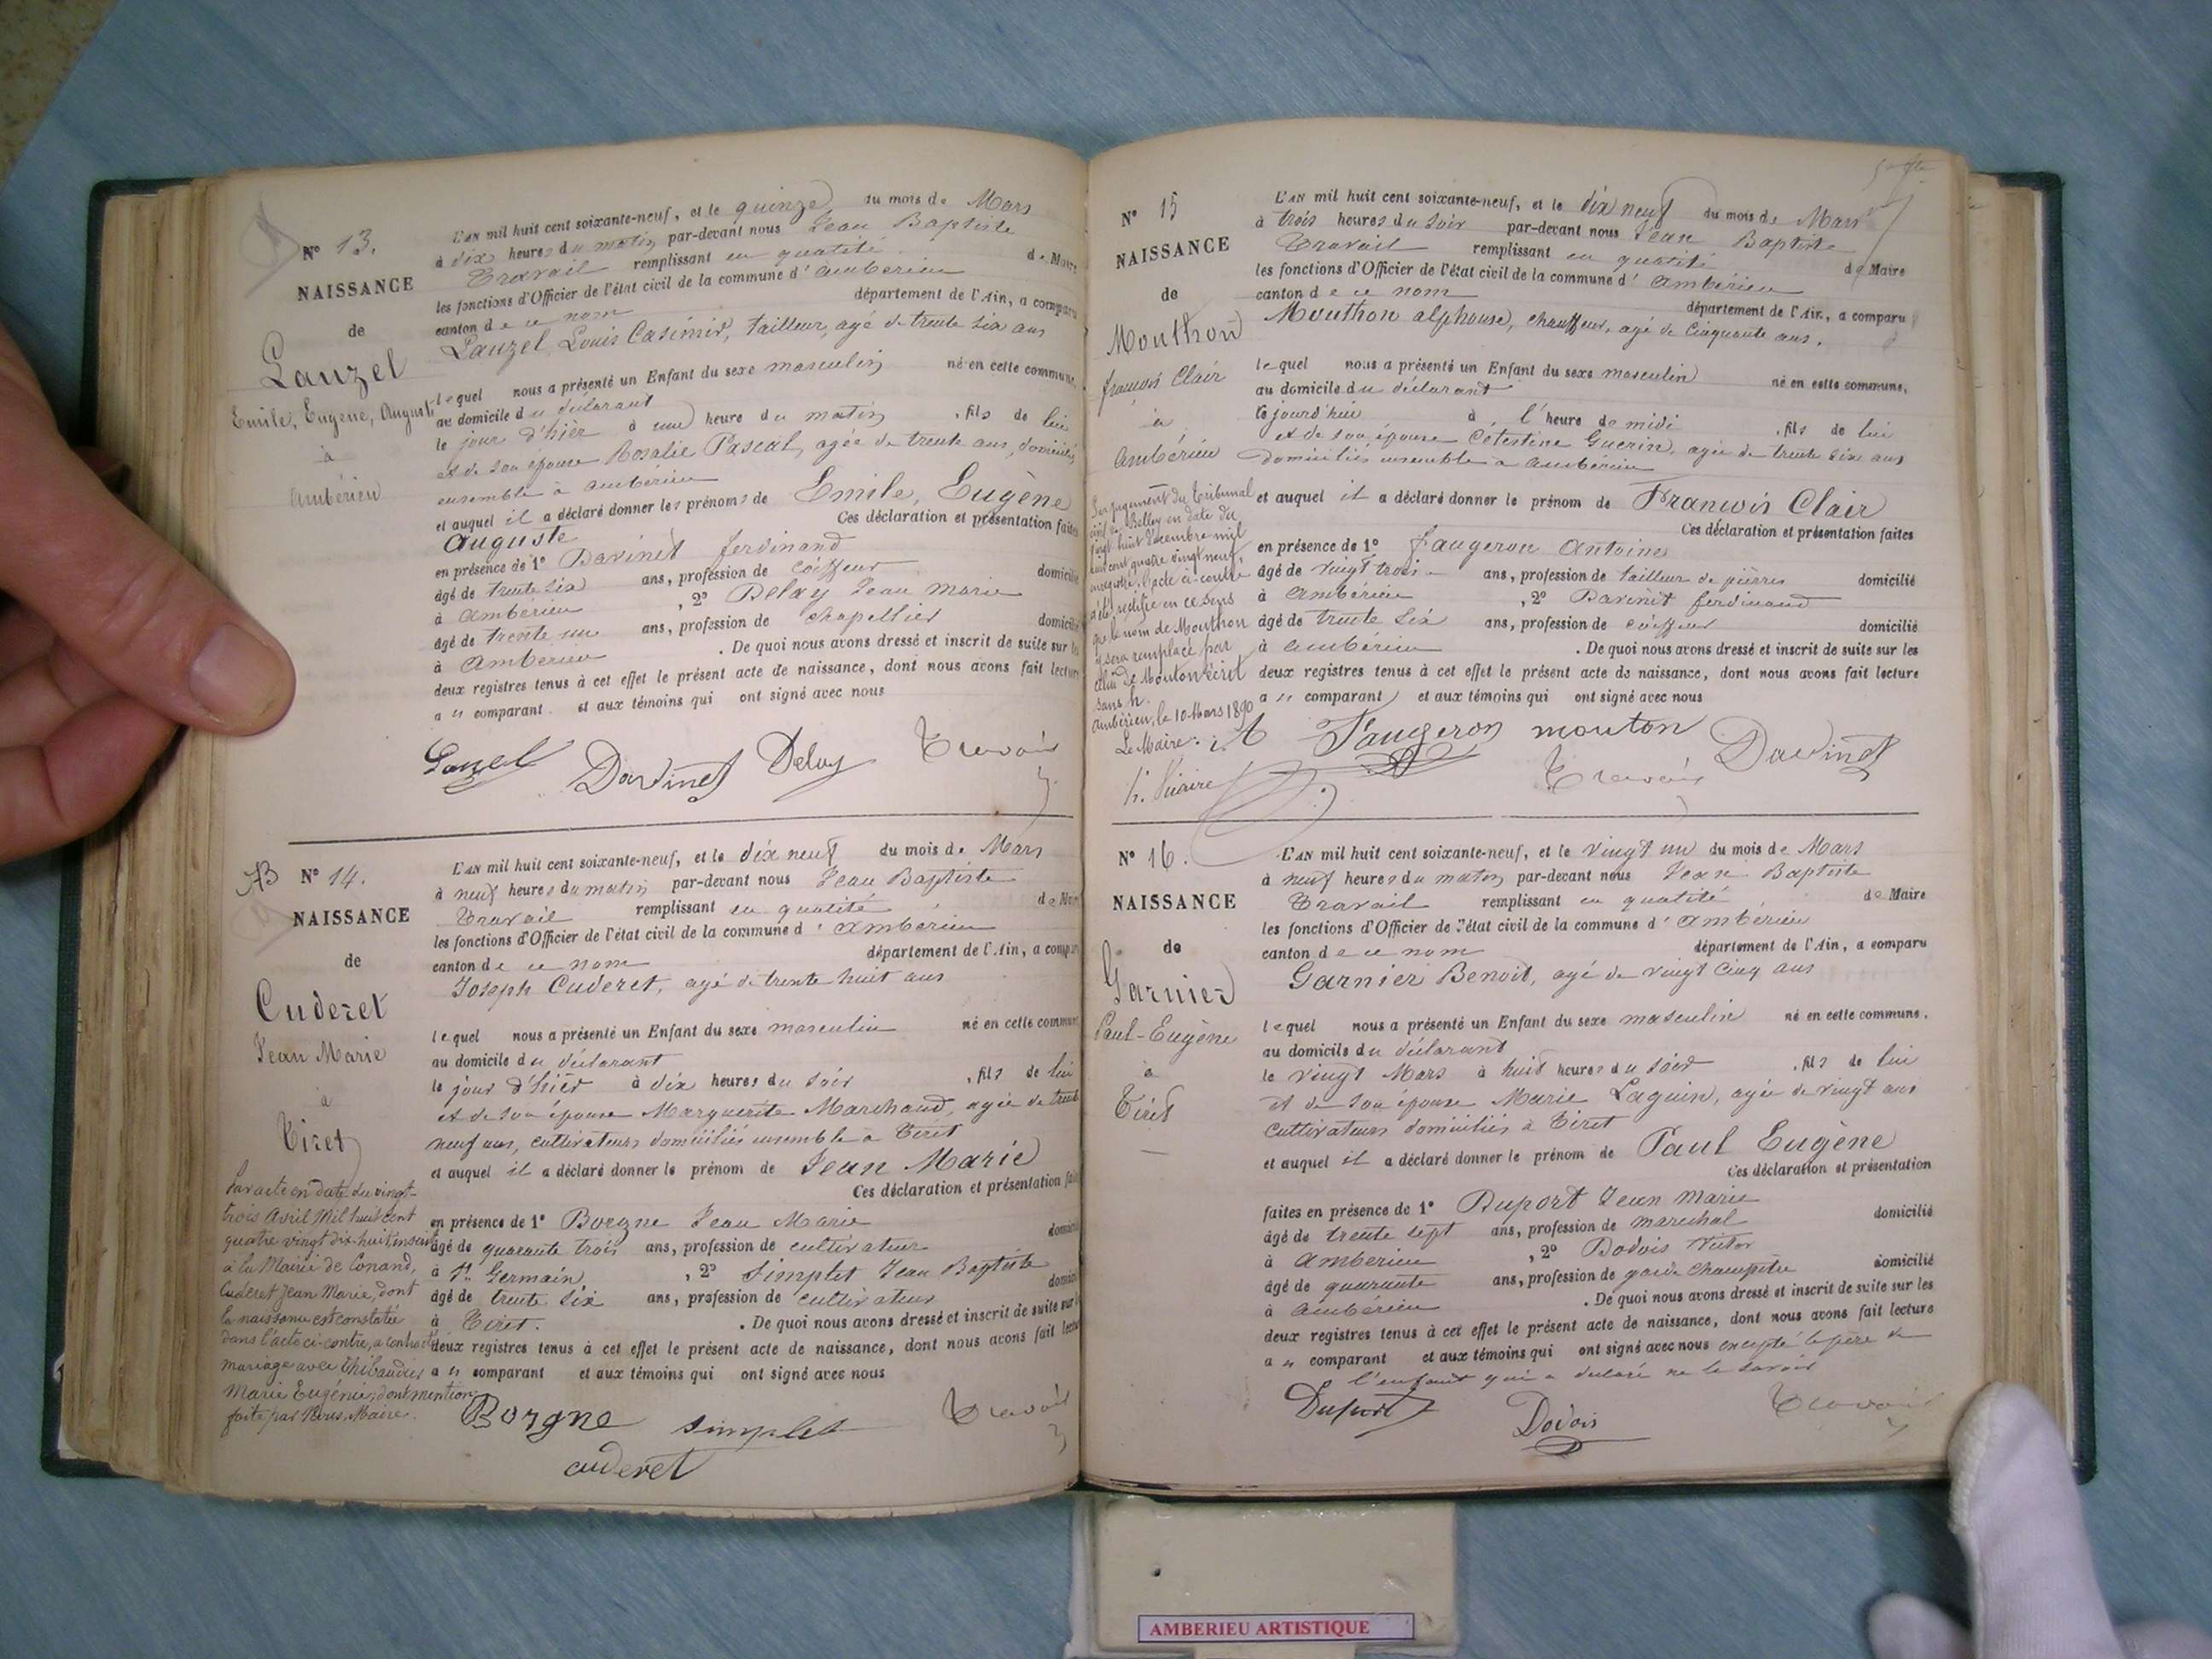 N° 13.
NAISSANCE
de
Lauzel
Emile, Eugène, Auguste
à
Ambérieu
L'AN mil huit cent soixante-neuf, et le quinze du mois de Mars
à dix heures du matin par-devant nous Jean Baptiste
Travail remplissant en qualité de Maire
les fonctions d'Officier de l'état civil de la commune d'Ambérieu
canton de ce nom département de l'Ain, a comparu
Lauzel Louis Casimir, tailleur, agé de trente six ans
lequel nous a présenté un Enfant du sexe masculin né en cette commune,
au domicile du déclarant
le jour d'hièr à une heure du matin, fils de lui
et de son épouse Rosalie Pascal, agée de trente ans, domiciliés
ensemble à Ambérieu
et auquel il a déclaré donner les prénoms de Emile, Eugène
Auguste Ces déclaration et présentation faites
en présence de 1° Davinet ferdinand
âgé de trente six ans, profession de coiffeur domicilié
à Ambérieu, 2° Delay Jean Marie
âgé de trente un ans, profession de chapellier domicilié
à Ambérieu. De quoi nous avons dressé et inscrit de suite sur les
deux registres tenus à cet effet le présent acte de naissance, dont nous avons fait lecture
a u comparant et aux témoins qui ont signé avec nous
Davinet Delay
N° 14.
NAISSANCE
de
Cuderet
Jean Marie
à
Tiret
Par acte en date du vingt-
trois Avril Mil huit cent
quatre vingt dix-huit, inscrit
à la Mairie de Conand,
Cuderet Jean Marie, dont
la naissance est constatée
dans l'acte ci-contre, a contracté
mariage avec Thibaudier
Marie Eugénie, dont mention
faite par Nous, Maire.
L'AN mil huit cent soixante-neuf, et le dix neuf du mois de Mars
à neuf heures du matin par-devant nous Jean Baptiste
Travail remplissant en qualité de Maire
les fonctions d'Officier de l'état civil de la commune d'Ambérieu
canton de ce nom département de l'Ain, a comparu
Joseph Cuderet, agé de trente huit ans
lequel nous a présenté un Enfant du sexe masculin né en cette commune
au domicile du déclarant
le jour d'hièr à dix heures du soir, fils de lui
et de son épouse Marguerite Marchand, agée de trente
neuf ans, cultivateurs domiciliés ensemble à Tiret
et auquel il a déclaré donner le prénom de Jean Marie
Ces déclaration et présentation faites
en présence de 1° Borgne Jean Marie
âgé de quarante trois ans, profession de cultivateur domicilié
à St. Germain, 2° Simplet Jean Baptiste
âgé de trente six ans, profession de cultivateur domicilié
à Tiret. De quoi nous avons dressé et inscrit de suite sur les
deux registres tenus à cet effet le présent acte de naissance, dont nous avons fait lecture
a u comparant et aux témoins qui ont signé avec nous
Borgne simplet
cuderet
N° 15
NAISSANCE
de
Mouthon
françois Clair
à
Ambérieu
Par jugement du Tribunal
civil de Belley en date du
vingt huit Décembre mil
huit cent quatre vingt neuf,
enregistré, l'acte ci-contre
a été rectifié en ce sens
que le nom de Mouthon
y sera remplacé par
celui de Mouton écrit
sans h.
Ambérieu, le 10 Mars 1890
Le Maire.
L'AN mil huit cent soixante-neuf, et le dix neuf du mois de Mars
à trois heures du soir par-devant nous Jean Baptiste
Travail remplissant en qualité de Maire
les fonctions d'Officier de l'état civil de la commune d'Ambérieu
canton de ce nom département de l'Ain, a comparu
Mouthon alphonse, chauffeur, agé de cinquante ans.
lequel nous a présenté un Enfant du sexe masculin né en cette commune,
au domicile du déclarant
le jourd'hui à l'heure de midi, fils de lui
et de son épouse Célestine Guerin, agée de trente six ans
domiciliés ensemble à Ambérieu
et auquel il a déclaré donner le prénom de François Clair
Ces déclaration et présentation faites
en présence de 1° faugeron Antoine
âgé de vingt trois ans, profession de tailleur de pierres domicilié
à Ambérieu, 2° Davinet ferdinand
âgé de trente six ans, profession de coiffeur domicilié
à Ambérieu. De quoi nous avons dressé et inscrit de suite sur les
deux registres tenus à cet effet le présent acte de naissance, dont nous avons fait lecture
a u comparant et aux témoins qui ont signé avec nous
Faugeron mouton Davinet
N° 16.
NAISSANCE
de
Garnier
Paul-Eugène
à
Tiret
L'AN mil huit cent soixante-neuf, et le vingt un du mois de Mars
à neuf heures du matin par-devant nous Jean Baptiste
Travail remplissant en qualité de Maire
les fonctions d'Officier de l'état civil de la commune d'Ambérieu
canton de ce nom département de l'Ain, a comparu
Garnier Benoit, agé de vingt cinq ans
lequel nous a présenté un Enfant du sexe masculin né en cette commune,
au domicile du déclarant
le vingt Mars à huit heures du soir, fils de lui
et de son épouse Marie Laguin, agée de vingt ans
cultivateurs domiciliés à Tiret
et auquel il a déclaré donner le prénom de Paul Eugène
Ces déclaration et présentation
faites en présence de 1° Duport Jean Marie
âgé de trente sept ans, profession de marechal domicilié
à Ambérieu, 2° Dodois Victor
âgé de quarante ans, profession de garde champêtre domicilié
à Ambérieu. De quoi nous avons dressé et inscrit de suite sur les
deux registres tenus à cet effet le présent acte de naissance, dont nous avons fait lecture
a u comparant et aux témoins qui ont signé avec nous excepté le père de
l'enfant qui a déclaré ne le savoir
Duport Dodois
AMBERIEU ARTISTIQUE